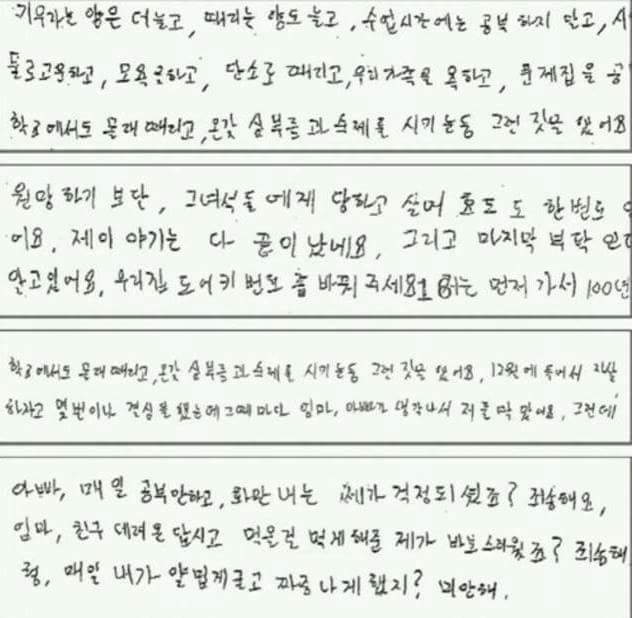 키우라는 양은 더 늘고, 때리는 양도 늘고, 수업시간에는 공부하지 말고, 시
둘르고운하고, 모욕을하고, 단소로 때리고, 우리가족을 욕하고, 문제집을 공
학교에서도 몰래 때리고, 온갖 심부름과 숙제를 시키는등 그런 짓을 했어요
원망하기 보단, 그녀석들에게 당하고 살며 효도도 한번도
어요, 제 이야기는 다 끝이 났네요, 그리고 마지막 부탁인데
알고있어요, 우리집 도어키 번호 좀 바꿔주세요. 저는 먼저 가서 100년
학교에서도 몰래 때리고, 온갖 심부름과 숙제를 시키는등 그런 짓을 했어요, 12월에 들어서 자살
하자고 몇번이나 결심을 했는데 그때마다 엄마, 아빠가 생각나서 저를 막았어요, 그런데
아빠, 매일 공부안하고, 화만내는 제가 걱정되셨죠? 죄송해요,
엄마, 친구 데려온답시고 먹을걸 먹게해준 제가 바보스러웠죠? 죄송해
형, 매일 내가 얄밉게굴고 짜증나게 했지? 미안해.